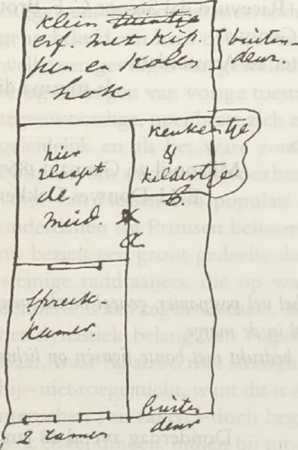 klein tuintje
erf. met kip
pen en kolen
hok
buiten-
deur.
hier
slaapt
de
meid
keukentje
&
keldertje
Spreek-
kamer.
buiten
deur
2 ramen